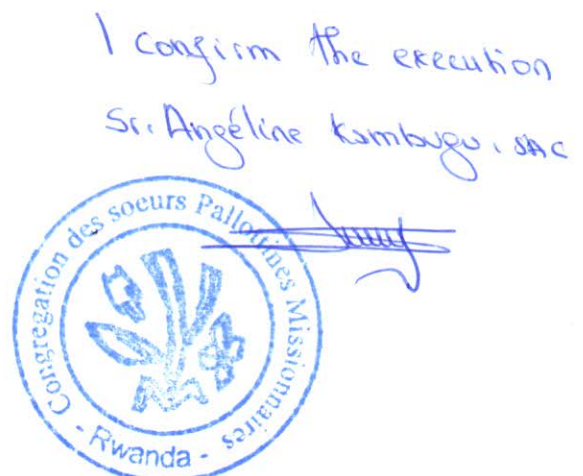 I confirm the execution
Sr. Angéline Kambugu, SAC
Congrégation des soeurs Pallottines Missionnaires
- Rwanda -